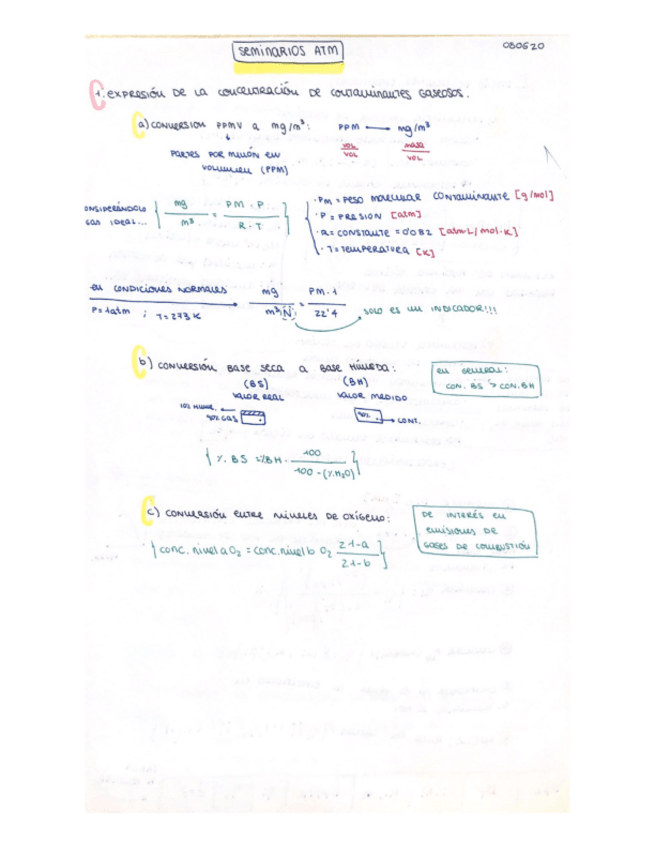 SEMINARIOS ATM
080620
1. EXPRESIÓN DE LA CONCENTRACIÓN DE CONTAMINANTES GASEOSOS.
a) CONVERSION PPMV a mg/m³: PPM → mg/m³
VOL/VOL masa/VOL
PARTES POR MILLÓN EN
VOLUMEN (PPM)
ONSIDERÁNDOLO
GAS IDEAL...
mg/m³ = PM · P / R · T
· PM = PESO MOLECULAR CONTAMINANTE [g/mol]
· P = PRESION [atm]
· R = CONSTANTE = 0'082 [atm·L/mol·K]
· T = TEMPERATURA [K]
EN CONDICIONES NORMALES
P = 1 atm ; T = 273 K
mg/m³(N) = PM · 1 / 22'4
SOLO ES UN INDICADOR!!!
b) CONVERSIÓN BASE SECA A BASE HÚMEDA:
(BS) (BH)
VALOR REAL VALOR MEDIDO
EN GENERAL:
CON. BS > CON. BH
10% HUME.
90% GAS
90% → CONT.
% BS = % BH · 100 / 100 - (% H₂O)
c) CONVERSIÓN ENTRE NIVELES DE OXÍGENO:
DE INTERÉS EN
EMISIONES DE
GASES DE COMBUSTIÓN
conc. nivel a O₂ = conc. nivel b O₂ 21-a / 21-b